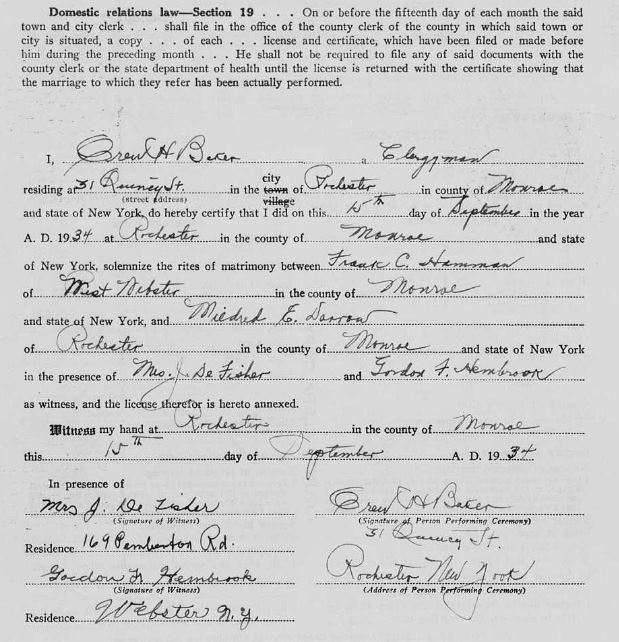 Domestic relations law—Section 19 . . . On or before the fifteenth day of each month the said
town and city clerk . . . shall file in the office of the county clerk of the county in which said town or
city is situated, a copy . . . of each . . . license and certificate, which have been filed or made before
him during the preceding month . . . He shall not be required to file any of said documents with the
county clerk or the state department of health until the license is returned with the certificate showing that
the marriage to which they refer has been actually performed.
I, H Baker a Clergyman
residing at 31 Quincy St. in the city town village of Rochester in county of Monroe
(street address)
and state of New York, do hereby certify that I did on this 15th day of September in the year
A. D. 1934 at Rochester in the county of Monroe and state
of New York, solemnize the rites of matrimony between Frank C. Hamman
of West Webster in the county of Monroe
and state of New York, and Mildred E. Darrow
of Rochester in the county of Monroe and state of New York
in the presence of Mrs. J. De Fisher and Gordon F. Hembrook
as witness, and the license therefor is hereto annexed.
Witness my hand at Rochester in the county of Monroe
this 15th day of September A. D. 1934
In presence of
Mrs J. De Fisher H Baker
(Signature of Witness) (Signature of Person Performing Ceremony)
31 Quincy St.
Residence 169 Pemberton Rd.
Gordon F. Hembrook Rochester New York
(Signature of Witness) (Address of Person Performing Ceremony)
Residence Webster N.Y.